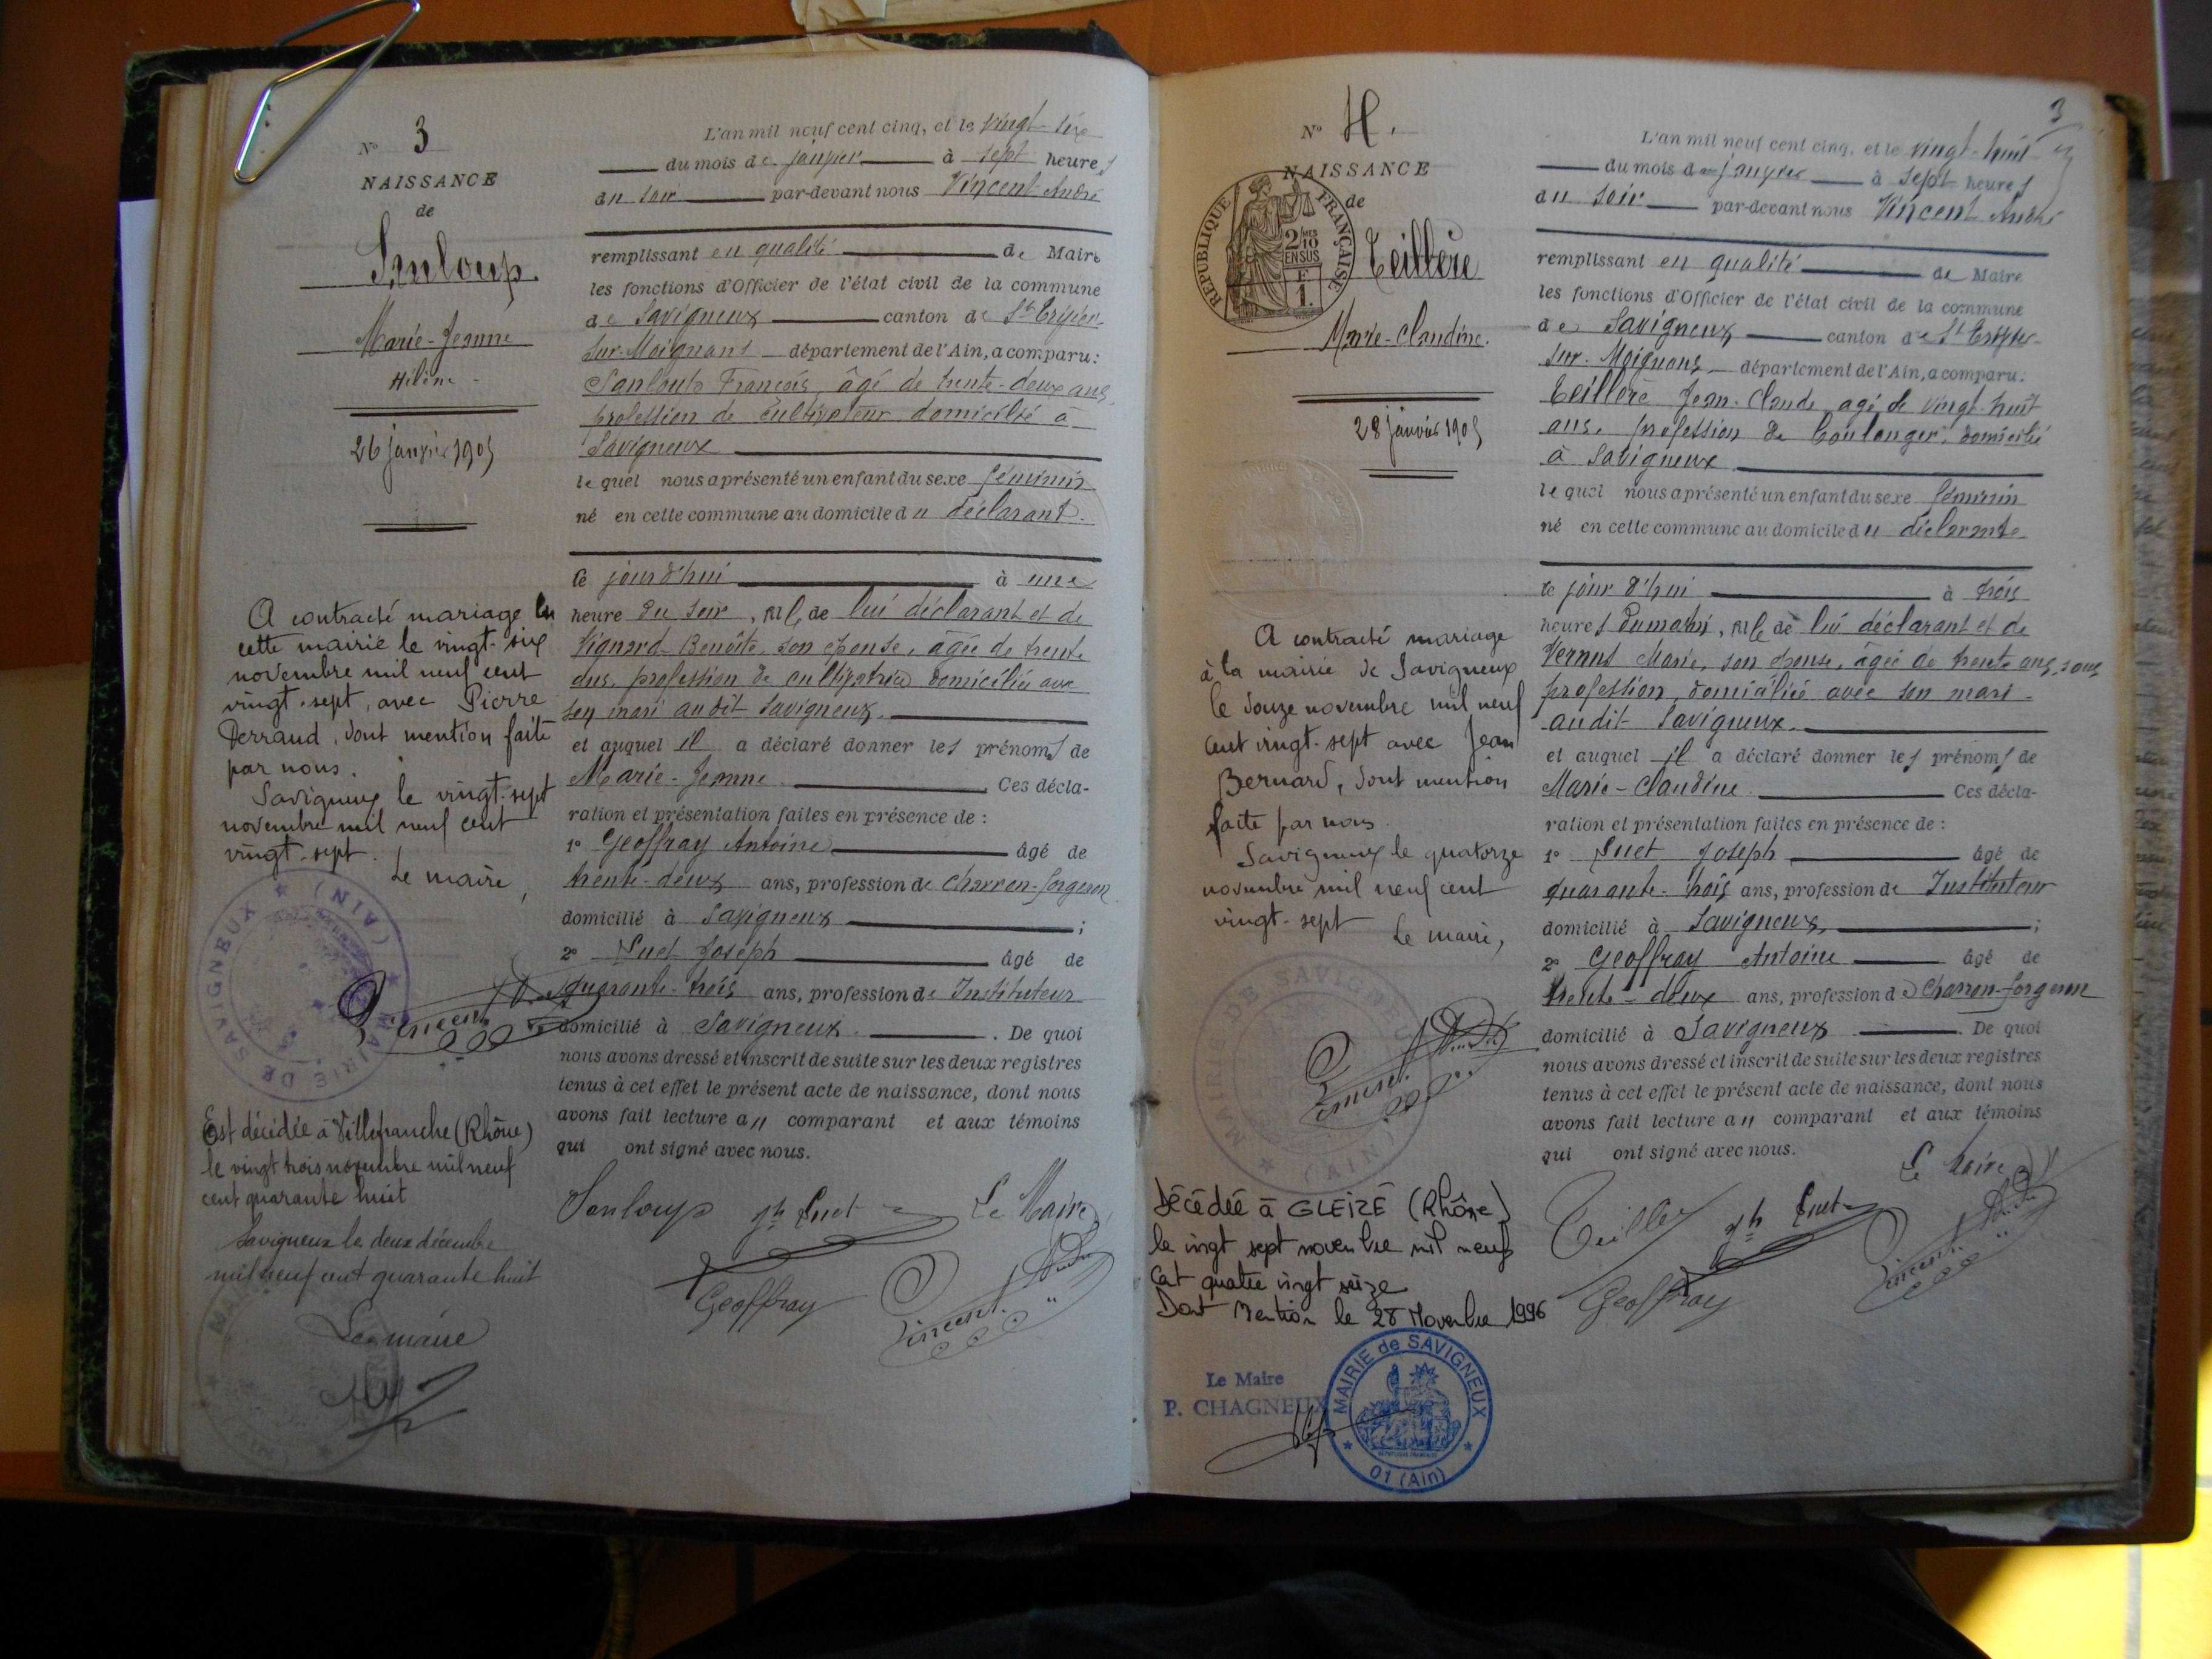 N° 3
NAISSANCE
de
Sanloup
Marie-Jeanne
Hélène
26 janvier 1905
A contracté mariage en
cette mairie le vingt-six
novembre mil neuf cent
vingt-sept, avec Pierre
Perraud, dont mention faite
par nous.
Savigneux le vingt-sept
novembre mil neuf cent
vingt-sept.
Le maire,
MAIRIE DE SAVIGNEUX (AIN)
Vincent
Est décédée à Villefranche (Rhône)
le vingt trois novembre mil neuf
cent quarante huit
Savigneux le deux décembre
mil neuf cent quarante huit
Le maire
L'an mil neuf cent cinq, et le vingt-six
du mois de janvier à sept heures
du soir par-devant nous Vincent André
remplissant en qualité de Maire
les fonctions d'Officier de l'état civil de la commune
de Savigneux canton de St Trivier-
sur-Moignans département de l'Ain, a comparu:
Sanloup François, âgé de trente-deux ans,
profession de cultivateur domicilié à
Savigneux
lequel nous a présenté un enfant du sexe féminin
né en cette commune au domicile du déclarant.
ce jourd'hui à une
heure du soir, fille de lui déclarant et de
Vignard Benoîte, son épouse, âgée de trente
ans, profession de cultivatrice domiciliée avec
son mari audit Savigneux.
et auquel il a déclaré donner les prénoms de
Marie-Jeanne Ces décla-
ration et présentation faites en présence de :
1° Geoffray Antoine âgé de
trente-deux ans, profession de charron-forgeron
domicilié à Savigneux ;
2° Suet Joseph âgé de
quarante-trois ans, profession de Instituteur
domicilié à Savigneux. De quoi
nous avons dressé et inscrit de suite sur les deux registres
tenus à cet effet le présent acte de naissance, dont nous
avons fait lecture au comparant et aux témoins
qui ont signé avec nous.
Sanloup Jh Suet Le Maire
Geoffray Vincent André
3
N° 4.
NAISSANCE
de
RÉPUBLIQUE FRANÇAISE
2/10 EN SUS
F.
1.
Teillère
Marie-Claudine.
28 janvier 1905
A contracté mariage
à la mairie de Savigneux
le douze novembre mil neuf
cent vingt-sept avec Jean
Bernard, dont mention
faite par nous.
Savigneux le quatorze
novembre mil neuf cent
vingt-sept
Le maire,
MAIRIE DE SAVIGNEUX (AIN)
Vincent André
Décédée à GLEIZÉ (Rhône)
le vingt sept novembre mil neuf
cent quatre vingt seize
Dont Mention le 28 Novembre 1996
Le Maire
P. CHAGNEUX
MAIRIE de SAVIGNEUX
01 (Ain)
L'an mil neuf cent cinq, et le vingt-huit
du mois de janvier à sept heures
du soir par-devant nous Vincent André
remplissant en qualité de Maire
les fonctions d'Officier de l'état civil de la commune
de Savigneux canton de St Trivier-
sur-Moignans département de l'Ain, a comparu:
Teillère Jean-Claude âgé de vingt-huit
ans, profession de boulanger, domicilié
à Savigneux
lequel nous a présenté un enfant du sexe féminin
né en cette commune au domicile du déclarante
ce jour d'hui à trois
heures du matin, fille de lui déclarant et de
Marie, son épouse, âgée de trente ans, sans
profession, domiciliée avec son mari
audit Savigneux.
et auquel il a déclaré donner les prénoms de
Marie-Claudine Ces décla-
ration et présentation faites en présence de :
1° Suet Joseph âgé de
quarante-trois ans, profession de Instituteur
domicilié à Savigneux, ;
2° Geoffray Antoine âgé de
trente-deux ans, profession de charron-forgeron
domicilié à Savigneux. De quoi
nous avons dressé et inscrit de suite sur les deux registres
tenus à cet effet le présent acte de naissance, dont nous
avons fait lecture au comparant et aux témoins
qui ont signé avec nous.
Le Maire
Teiller Jh Suet
Geoffray Vincent André